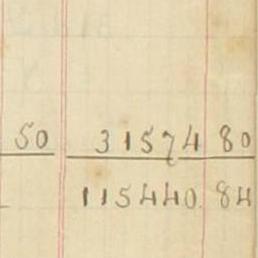 50 31574 80
115440. 84